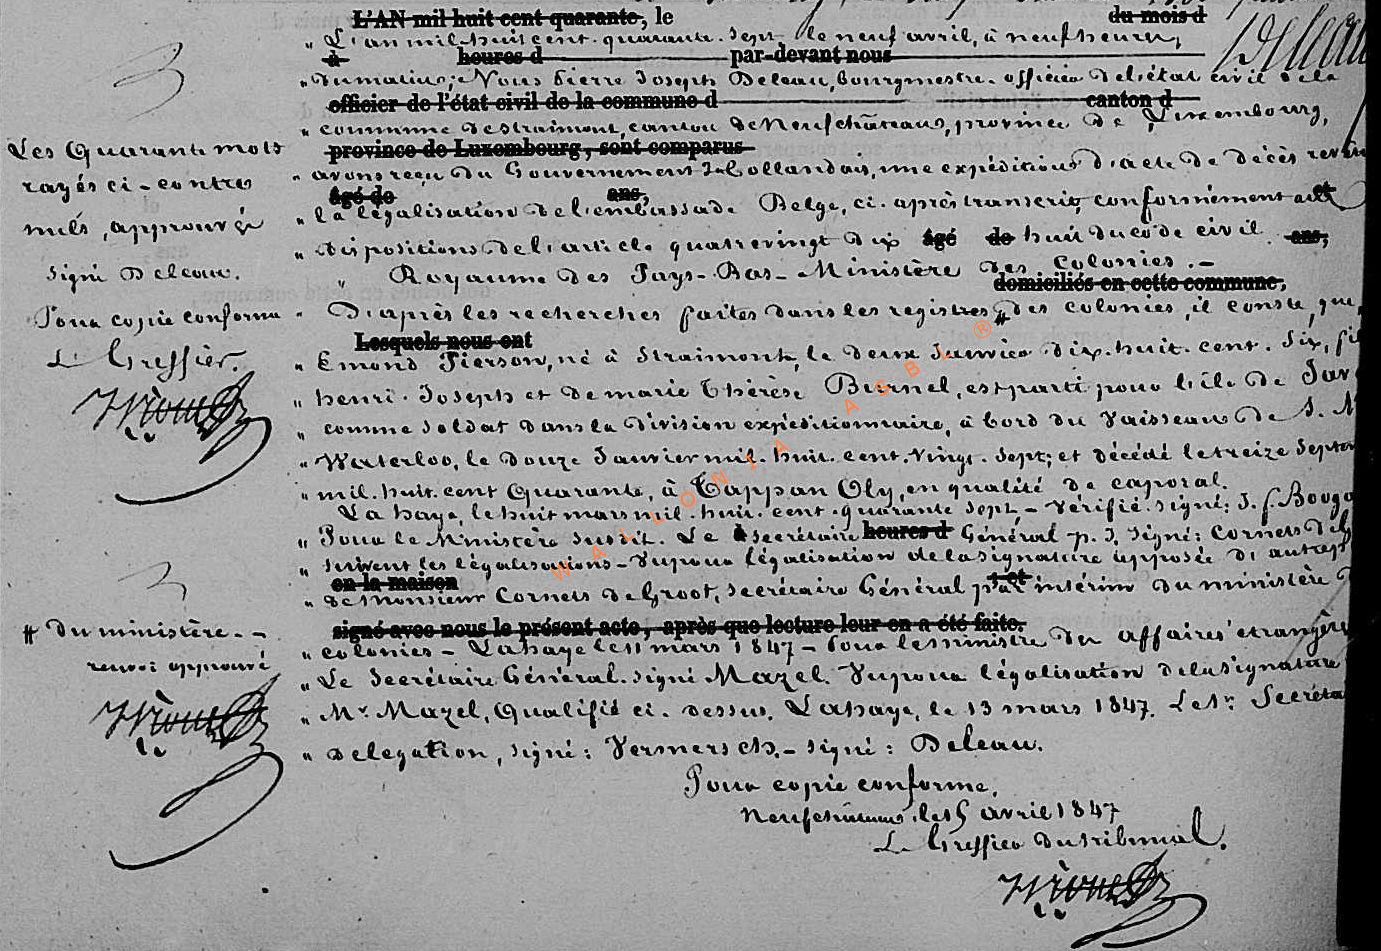 L'AN mil huit cent quarante, le du mois d
" L'an mil huit cent quarante sept le neuf avril, à neuf heures,
à heures d par-devant nous
" du matin; Nous Pierre Joseph Deleau, bourgmestre officier de l'état civil de la
officier de l'état civil de la commune d canton d
" commune de straimont, canton de Neufchâteau, province de Luxembourg,
province de Luxembourg, sont comparus
" avons reçu du Gouvernement hollandais, une expédition d'acte de décès
âgé de ans, et
" la légalisation de l'embassade Belge, ci-après transcrit, conformément aux
" dispositions de l'article quatrevingt dix âgé de huit du code civil. ans,
" Royaume des Pays-Bas - Ministère des Colonies. -
domiciliés en cette commune,
" D'après les recherches faites dans les registres # des colonies, il conste, que,
Lesquels nous ont
" Emond Pierson, né à Straimont, le deux Janvier dix-huit-cent-six,
" henri-Joseph et de marie Thérèse Burnel, est parti pour l'île de Java
" comme soldat dans la division expéditionnaire, à bord du vaisseau de S. M
" Waterloo, le douze Janvier mil-huit-cent-vingt-sept; et décédé le treize Septem
" mil-huit-cent Quarante, à Tappan Oly, en qualité de caporal.
La haye, le huit mars mil-huit-cent-quarante sept, - Vérifié signé: J.
" Pour le Ministère susdit. Le à secrétaire heures d Général p. I. signé: Cornets de
" suivent les légalisations - Vu pour légalisation de la signature apposée d'autre part
en la maison et
" de Monsieur Cornets de Groot, secrétaire Général par intérim du ministère
signé avec nous le présent acte, après que lecture leur en a été faite.
" colonies - La haye le 11 mars 1847 - Pour le ministre des affaires étrangères
" Le Secrétaire Général. signé Mazel. Vu pour légalisation de la signature
" Mr Mazel, Qualifié ci-dessus. La haye, le 13 mars 1847. Le 1r Secréta
" délégation, signé: Vermersch. - signé: Deleau.
Pour copie conforme,
Neufchâteau, le 15 avril 1847
Le Greffier du tribunal.
Deleau
3
Les Quarante mots
rayés ci-contre
nuls, approuvés
signé Deleau.
Pour copie conforme
Le Greffier.
3
# du ministère. -
renvoi approuvé
WALLONIA ASBL ®